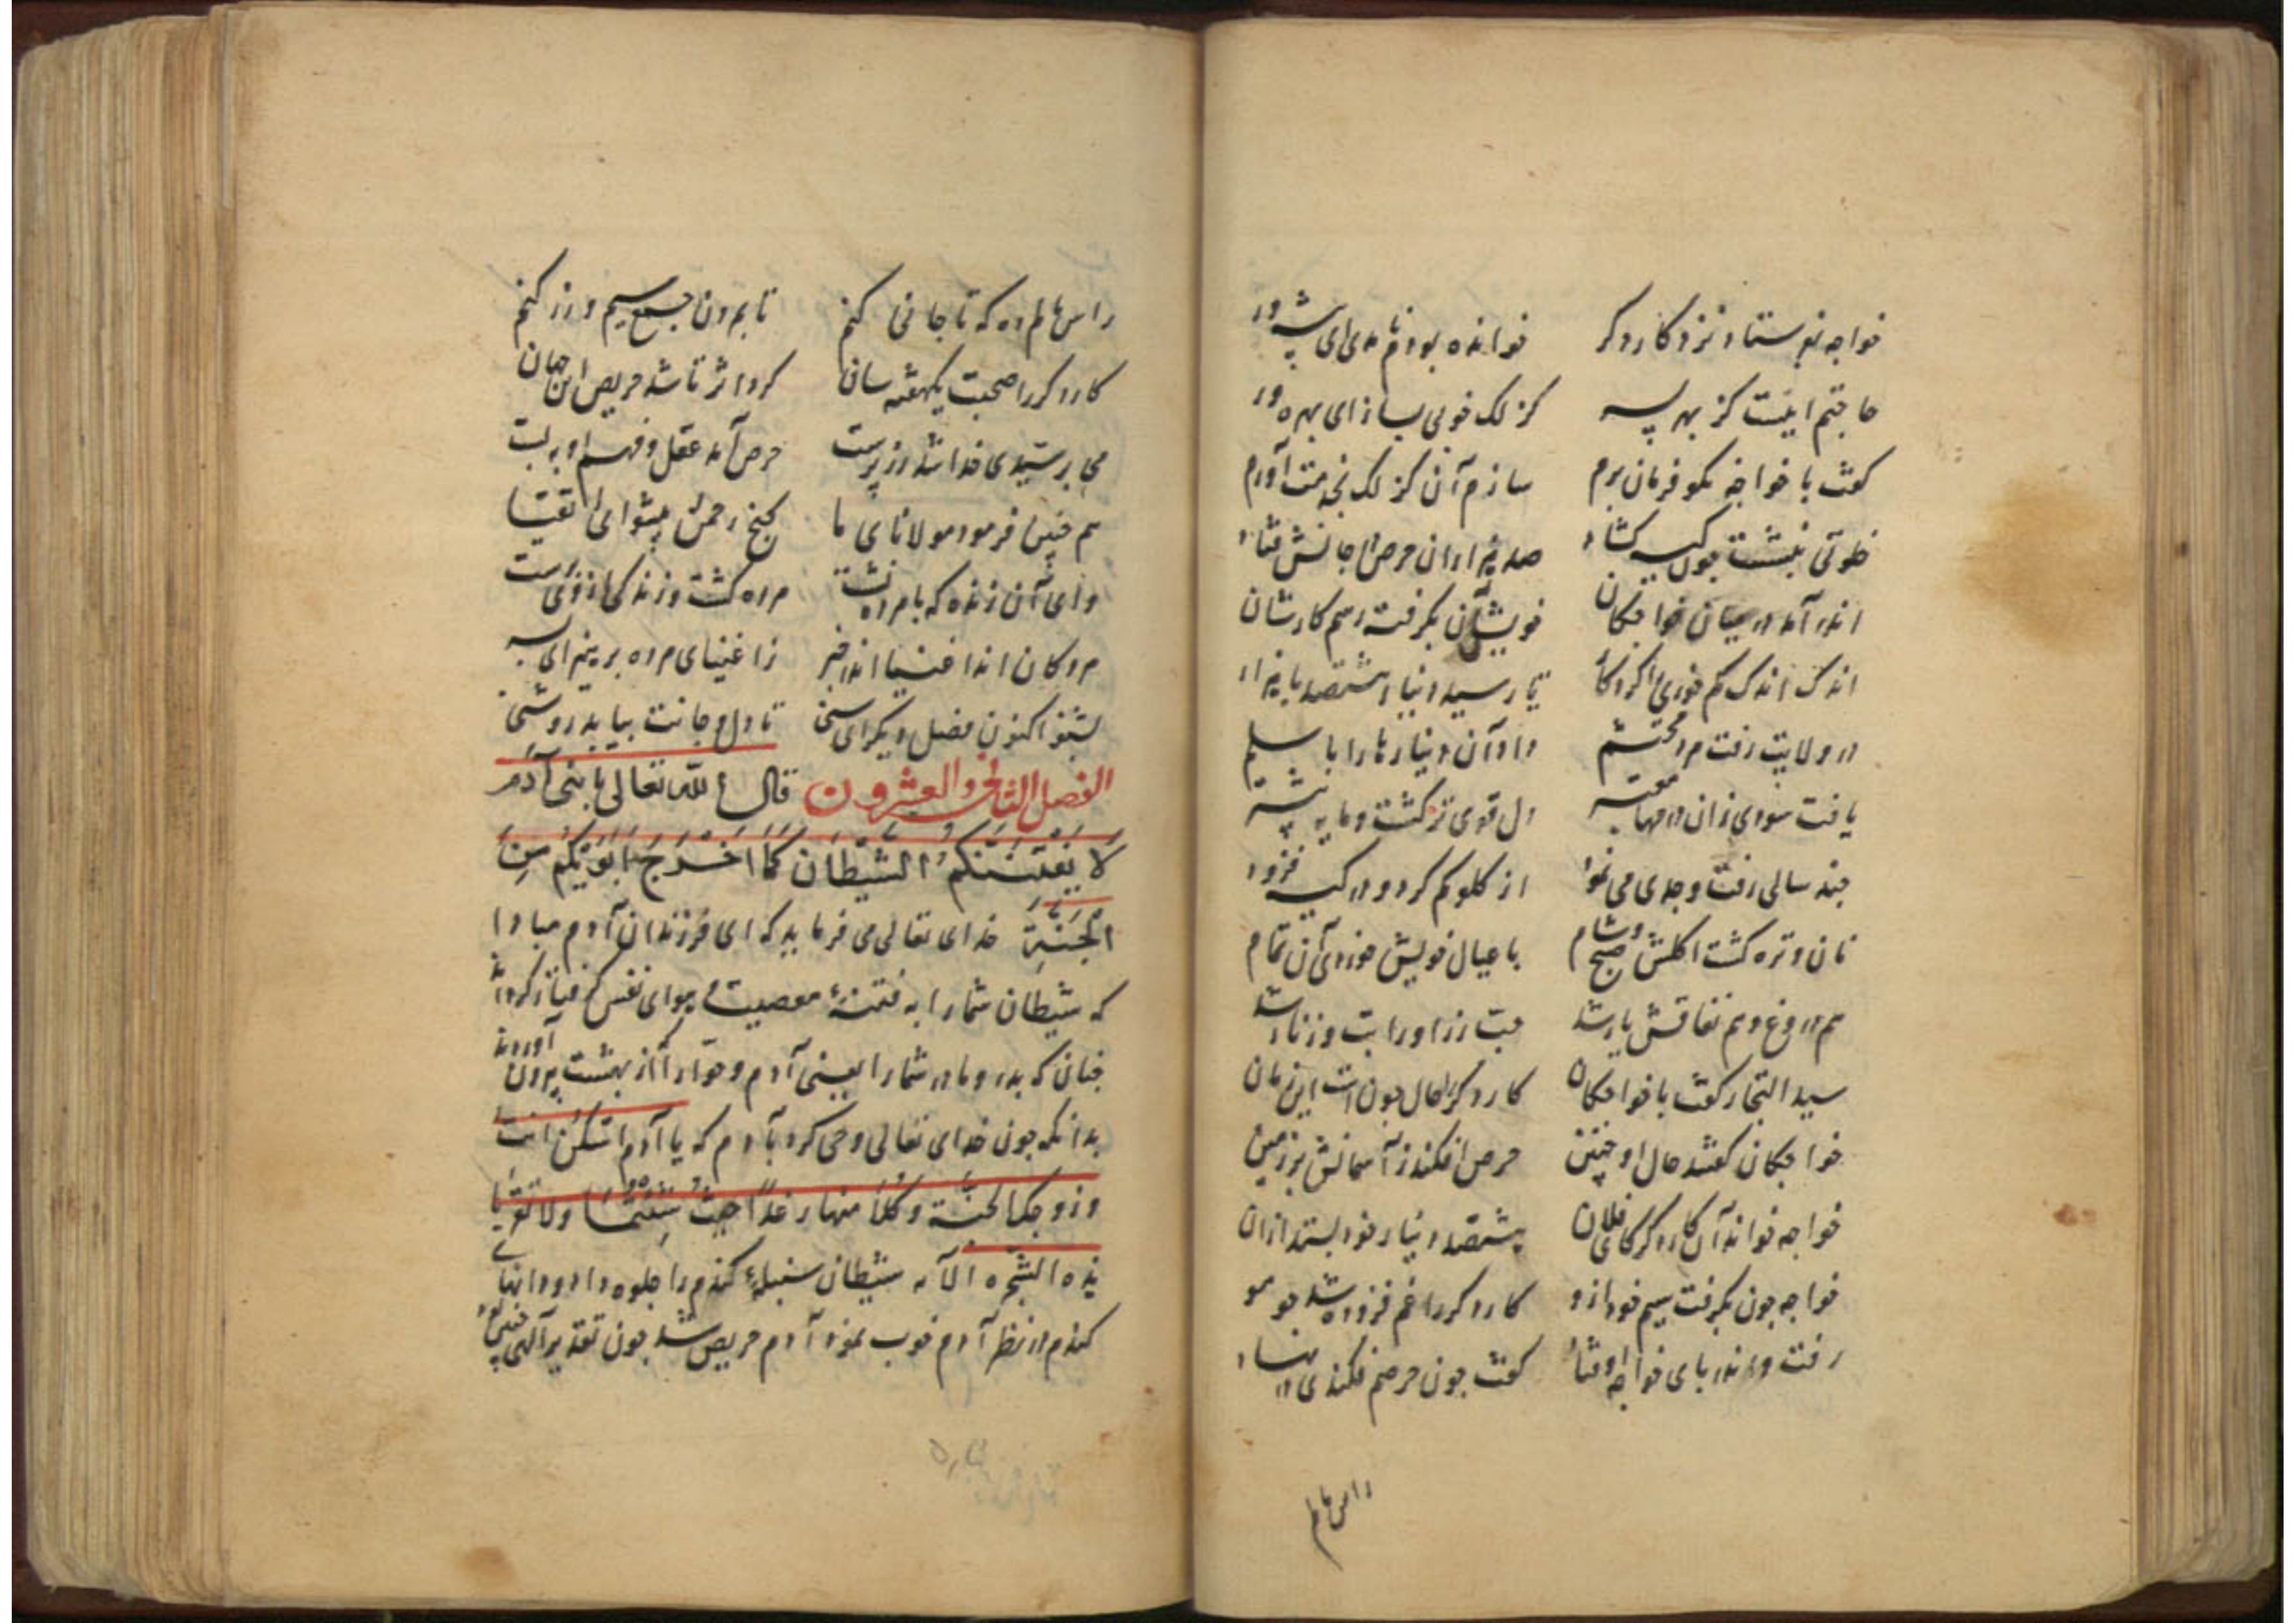 خواجه بفرستاد نزد کاردکر خوانده بود نامه ای پیشه ور
حاجتم اینست کز بهر پسر کزلک خوبی بساز ای بهره ور
کفت با خواجه بکو فرمان برم سازم آن کزلک بخدمت آورم
خلوتی بنشست چون کیسه کشاد صد هزاران حرص در جانش فتاد
اندر آمد در میان خواجکان خویشتن بکرفت رسم کارشان
اندک اندک کم خوری کرد تا رسید دینار هشتصد با هزار
در ولایت رفت مرد محتشم داد آن دینارها را با سلم
یافت سودی زان دل قوی تر کشت و مایه بیشتر
چند سالی رفت وجدی می نمود از کلو کم کرد و در کیسه فزود
نان و تره کشت اکلش صبح و شام با عیال خویش خوردی آن تمام
هم دروغ و هم نفاقش یار شد حبت زر او را بت و زنار شد
سید التجار کفت با خواجکان کاردکر را حال چون است این زمان
خواجکان کفتند حال او چنین حرص افکند ز آسمانش بر زمین
خواجه خواند آن کاردکر کای فلان هشتصد دینار خود بستد از آن
خواجه چون بکرفت سیم خود ازو کاردکر را غم فزوده شد چو مو
رفت و اندر پای خواجه او فتاد کفت چون حرصم فکندی در نهاد
راس مالم
راس مالم ده که تا جانی کنم تا برون جمع سیم و زر کنم
کاردکر را صحبت یکهفته سان کرد اثر تا شد حریص این جهان
می پرستیدی خدا شد زر پرست حرص آمد عقل و فهم او ببست
هم چنین فرمود مولانای ما کنج رحمن پیشوای اتقیا
وای آن زنده که با مرده نشست مرده کشت و زندکی از وی بجست
مردکان اند اغنیا اندر خبر ز اغنیای مرده پرهیز ای پسر
بشنو اکنون فصل دیکر ای سنی تا دل و جانت بیابد روشنی
الفصل الثانی والعشرون قال الله تعالی یا بنی آدم
لا یفتننکم الشیطان کما اخرج ابویکم من
الجنة خدای تعالی می فرماید که ای فرزندان آدم مبادا
که شیطان شمارا به فتنۀ معصیت و هوای نفس کرفتار کرداند
چنان که پدر و مادر شمارا یعنی آدم و حوّا را از بهشت بیرون آوردند
بدانکه چون خدای تعالی وحی کرد بآدم که یا آدم اسکن انت
وزوجک الجنة وکلا منها رغدا حیث شئتما ولا تقربا
هذه الشجره الآیه شیطان سنبلۀ کندم را جلوه داد و دانهای
کندم در نظر آدم خوب نمود آدم حریص شد چون تقدیر آلهی چنین بود